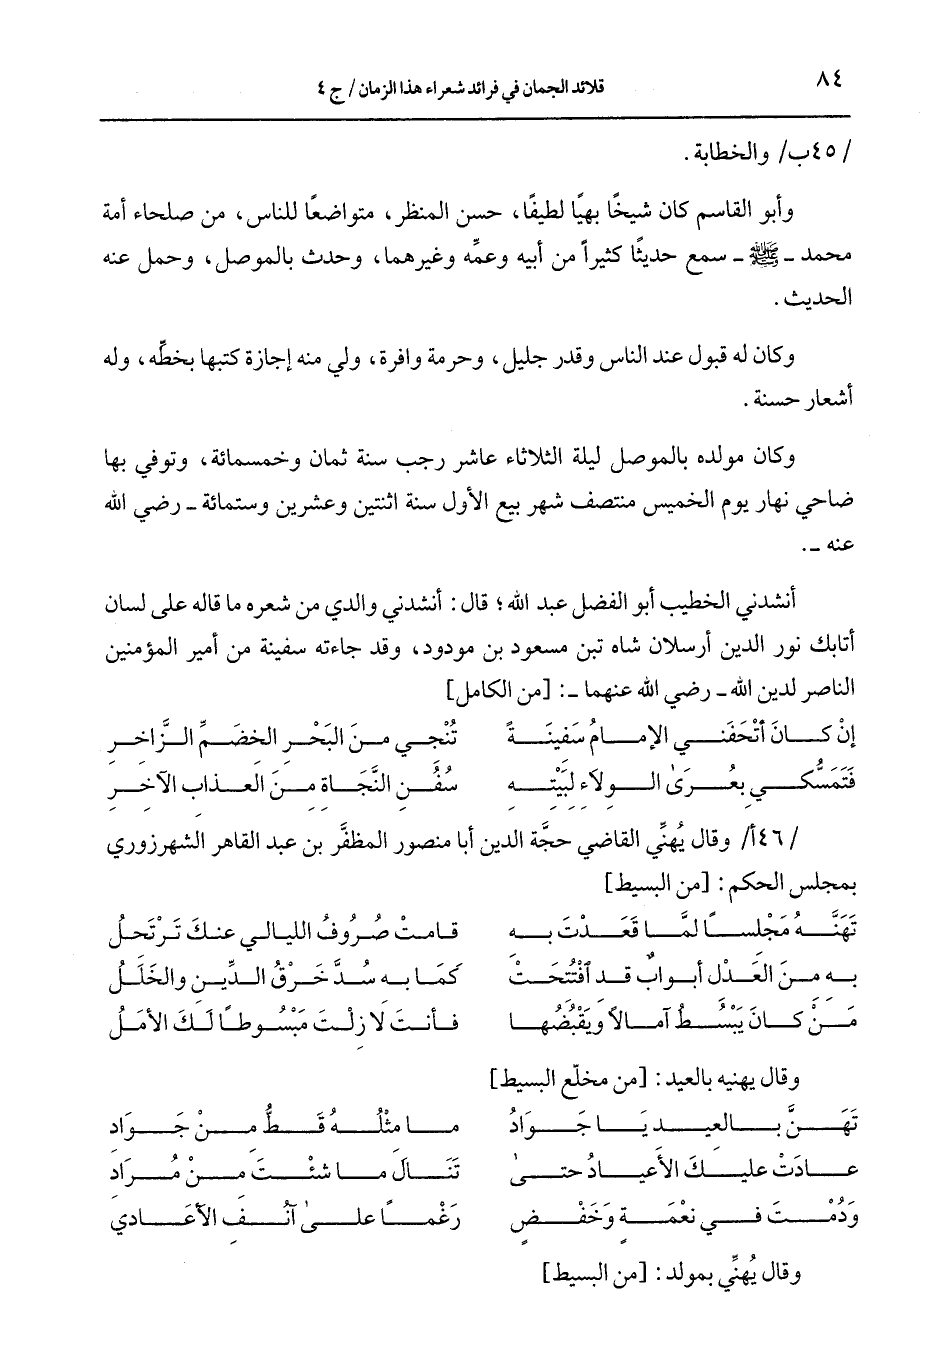 ٨٤
قلائد الجمان في فرائد شعراء هذا الزمان / ج ٤
/ ٤٥ب/ والخطابة .
وأبو القاسم كان شيخًا بهيًا لطيفًا، حسن المنظر، متواضعًا للناس، من صلحاء أمة
محمد ـ ﷺ ـ سمع حديثًا كثيراً من أبيه وعمِّه وغيرهما، وحدث بالموصل، وحمل عنه
الحديث .
وكان له قبول عند الناس وقدر جليل، وحرمة وافرة، ولي منه إجازة كتبها بخطِّه، وله
أشعار حسنة .
وكان مولده بالموصل ليلة الثلاثاء عاشر رجب سنة ثمان وخمسمائة، وتوفي بها
ضاحي نهار يوم الخميس منتصف شهر بيع الأول سنة اثنتين وعشرين وستمائة ـ رضي الله
عنه ـ.
أنشدني الخطيب أبو الفضل عبد الله؛ قال: أنشدني والدي من شعره ما قاله على لسان
أتابك نور الدين أرسلان شاه تبن مسعود بن مودود، وقد جاءته سفينة من أمير المؤمنين
الناصر لدين الله ـ رضي الله عنهما ـ: [من الكامل]
إنْ كَانَ ٱتْحَفَنِي الإمَامُ سَفِينَةً تُنْجِي مِنَ البَحْرِ الخضَمِّ الزَّاخِرِ
فَتَمَسُّكِي بِعُرَىٰ الوِلَاءِ لِبَيْتِهِ سُفُنِ النَّجَاةِ مِنَ العَذابِ الآخِرِ
/ ٤٦أ/ وقال يُهنِّي القاضي حجَّة الدين أبا منصور المظفَّر بن عبد القاهر الشهرزوري
بمجلس الحكم: [من البسيط]
تَهَنَّهُ مَجْلِسًا لمَّا قَعَدْتَ بِهِ قامتْ صُرُوفُ الليالي عنكَ تَرْتَحلُ
به منَ العَدْلِ أبوابٌ قد ٱفْتُتحَتْ كمَا به سُدَّ خَرْقُ الدِّينِ والخَلَلُ
مَنْ كَانَ يَبْسُطُ آمالاً ويَقْبُضُهَا فأنتَ لا زِلْتَ مَبْسُوطًا لَكَ الأمَلُ
وقال يهنيه بالعيد: [من مخلّع البسيط]
تَهَنَّ بِالعِيدِ يَا جَوَادُ مَا مثْلُهُ قَطُّ مِنْ جَوَادِ
عَادَتْ عليكَ الأعيادُ حتىٰ تَنَالَ مَا شئْتَ مِنْ مُرَادِ
وَدُمْتَ فِي نعْمَةٍ وَخَفْضٍ رَغْمًا علىٰ آنُفِ الأعَادي
وقال يُهنِّي بمولد: [من البسيط]